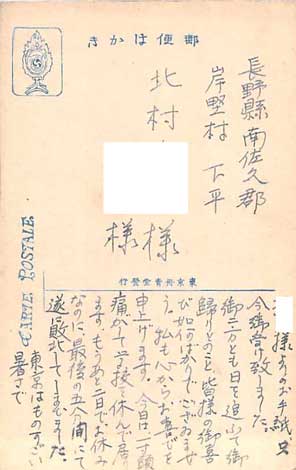 郵便はかき
長野縣南佐久郡
岸野村下平
北村
様
様
CARTE POSTALE
東京弁青堂發行
様よりのお手紙只
今御受け致しました。
御二方とも日を追ふて御
歸りとのこと皆様の御喜
び如何ばかりでございませ
う。私も心からお喜びを
申上げます。今日は二人頭
痛がして学校を休んで居り
ます。もうあと二日でお休み
なのに、最後の五分間にて
遂敗北してしまひました。
東京はものすごい
暑さで